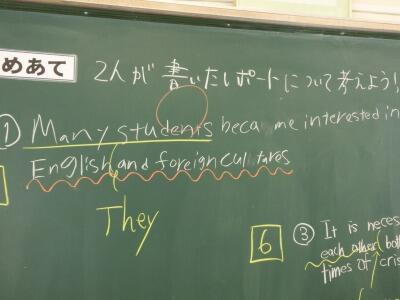 めあて 2人が書いたレポートについて考えよう!
① Many students became interested in
English and foreign cultures
They
6 ③ It is neces
each other bot
times of cris